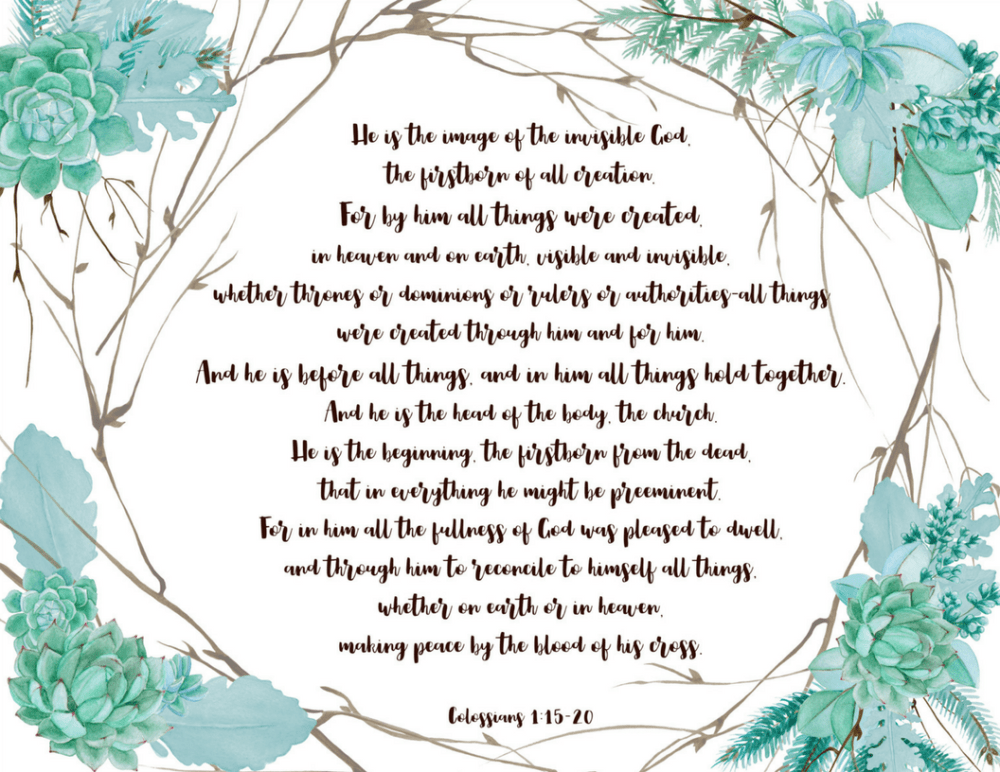 He is the image of the invisible God,
the firstborn of all creation.
For by him all things were created,
in heaven and on earth, visible and invisible,
whether thrones or dominions or rulers or authorities-all things
were created through him and for him.
And he is before all things, and in him all things hold together.
And he is the head of the body, the church.
He is the beginning, the firstborn from the dead,
that in everything he might be preeminent.
For in him all the fullness of God was pleased to dwell,
and through him to reconcile to himself all things,
whether on earth or in heaven,
making peace by the blood of his cross.
Colossians 1:15-20